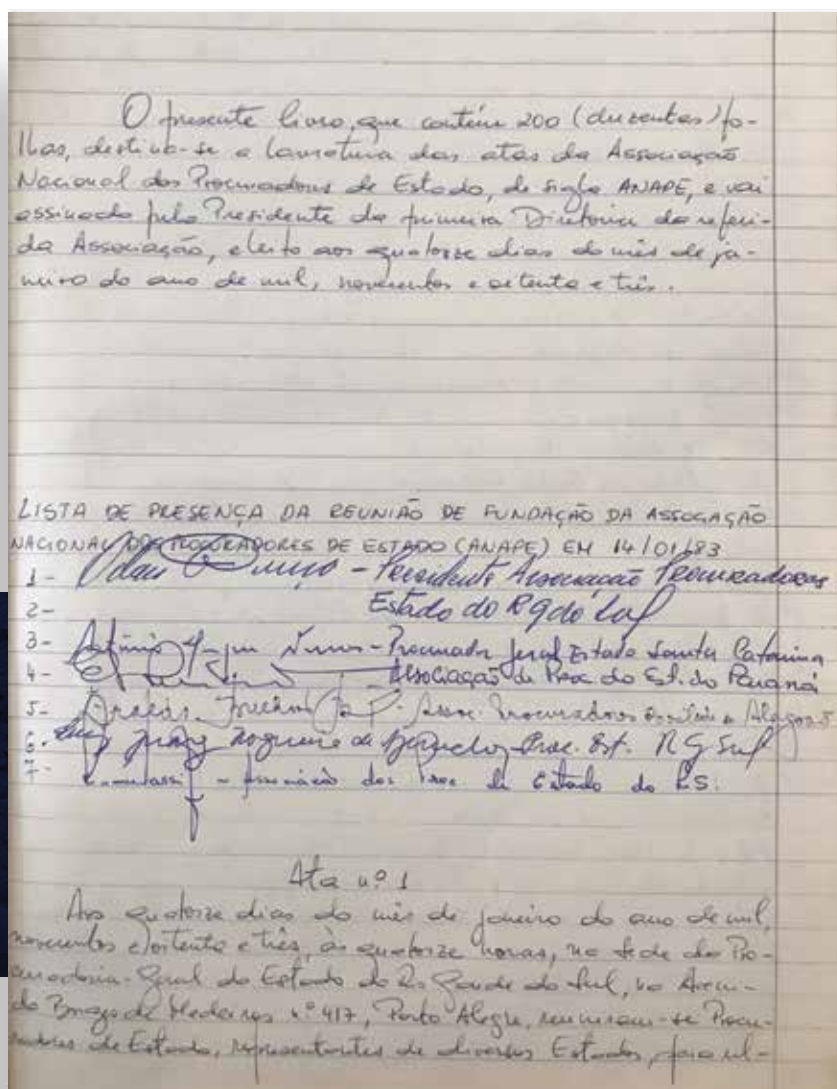 O presente livro, que contém 200 (duzentas) fo-
lhas, destina-se a lavratura das atas da Associação
Nacional dos Procuradores de Estado, de sigla ANAPE, e vai
assinado pelo Presidente da primeira Diretoria da referi-
da Associação, eleito aos quatorze dias do mês de ja-
neiro do ano de mil, novecentos e oitenta e três.
LISTA DE PRESENÇA DA REUNIÃO DE FUNDAÇÃO DA ASSOCIAÇÃO
NACIONAL DOS PROCURADORES DE ESTADO (ANAPE) EM 14/01/83
1 - - Presidente Associação Procuradores
Estado do R G do Sul
2 -
3 - Nunes - Procurador Geral Estado Santa Catarina
4 - - Associação de Proc. do Est. do Paraná
5 - - Assoc. Procuradores Alagoas
6 - Nogueira de - Proc. Est. R G Sul
7 - - Associação dos Proc. de Estado do RS.
Ata nº 1
Aos quatorze dias do mês de janeiro do ano de mil,
novecentos e oitenta e três, às quatorze horas, na sede da Pro-
curadoria-Geral do Estado do Rio Grande do Sul, na Aveni-
da Borges de Medeiros nº 417, Porto Alegre, reuniram-se Procu-
radores de Estado, representantes de diversos Estados, para